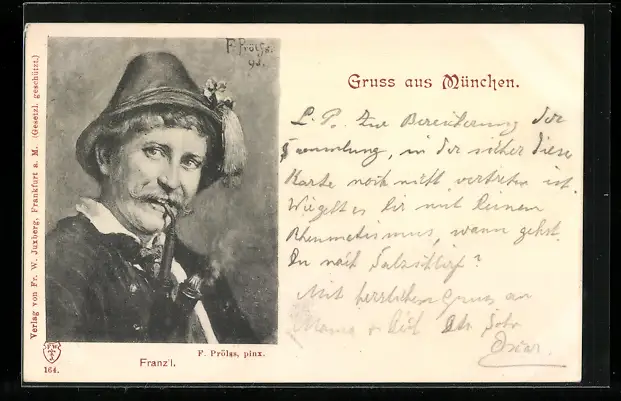 F. Prölss.
Gruss aus München.
L. P. Zur Bereicherung der
Sammlung, in der sicher diese
Karte noch nicht vertreten ist.
Wie geht es Dir mit Deinem
Rheumatismus, wann gehst
Du nach Salzschlirf?
Mit herzlichem Gruss an
Mama & Dich Dein Sohn
Oscar.
Verlag von Fr. W. Juxberg, Frankfurt a. M. (Gesetzl. geschützt.)
F. Prölss, pinx.
Franz'l.
164.